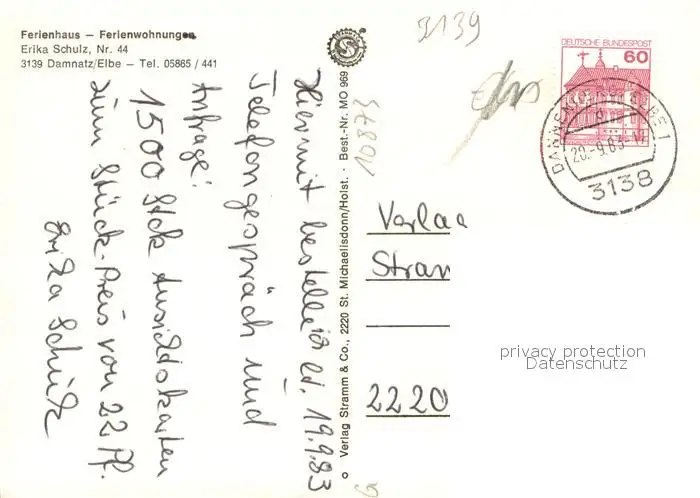 Ferienhaus – Ferienwohnungen
Erika Schulz, Nr. 44
3139 Damnatz/Elbe – Tel. 05865 / 441
Hiermit bestelle ich lt. 19.9.83
Telefongespräch und
Anfrage:
1500 Stck Ansichtskarten
zum Stück-Preis von 22 Pf.
Erika Schulz
© Verlag Stramm & Co., 2220 St. Michaelisdonn/Holst. · Best.-Nr. MO 969
10873
3139
DEUTSCHE BUNDESPOST
60
20.-9.83
3138
Verlag
Stram
2220
privacy protection
Datenschutz